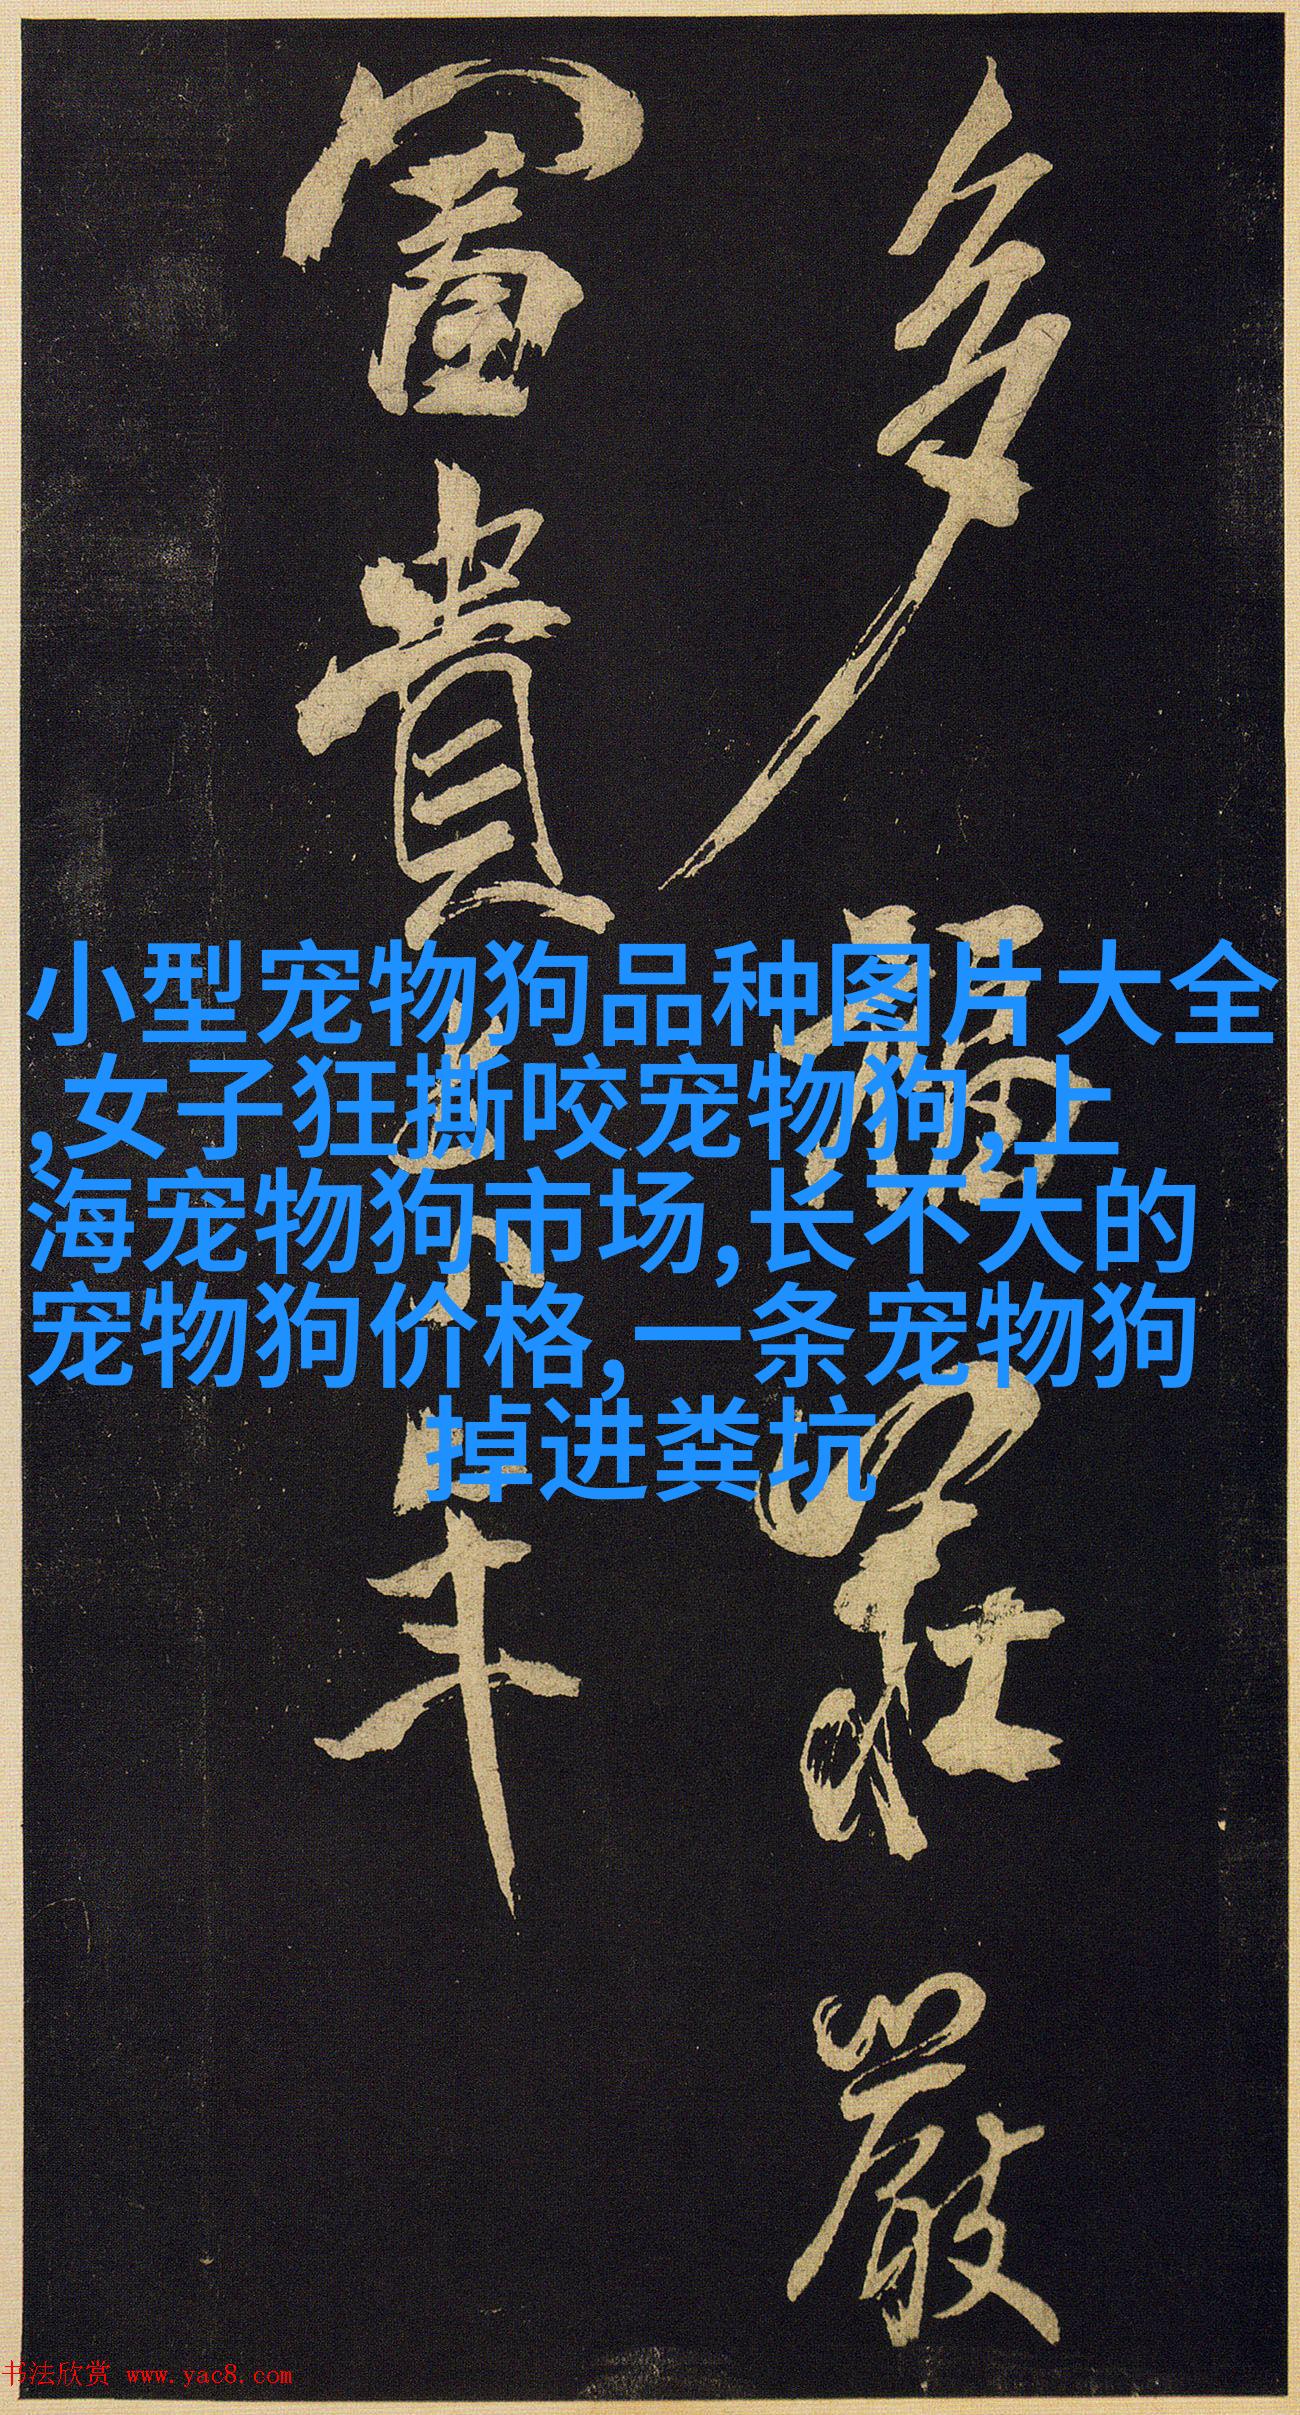 多福莊嚴
富貴
年
小型宠物狗品种图片大全
,女子狂撕咬宠物狗,上
海宠物狗市场,长不大的
宠物狗价格,一条宠物狗
掉进粪坑
书法欣赏 www.yac8.com